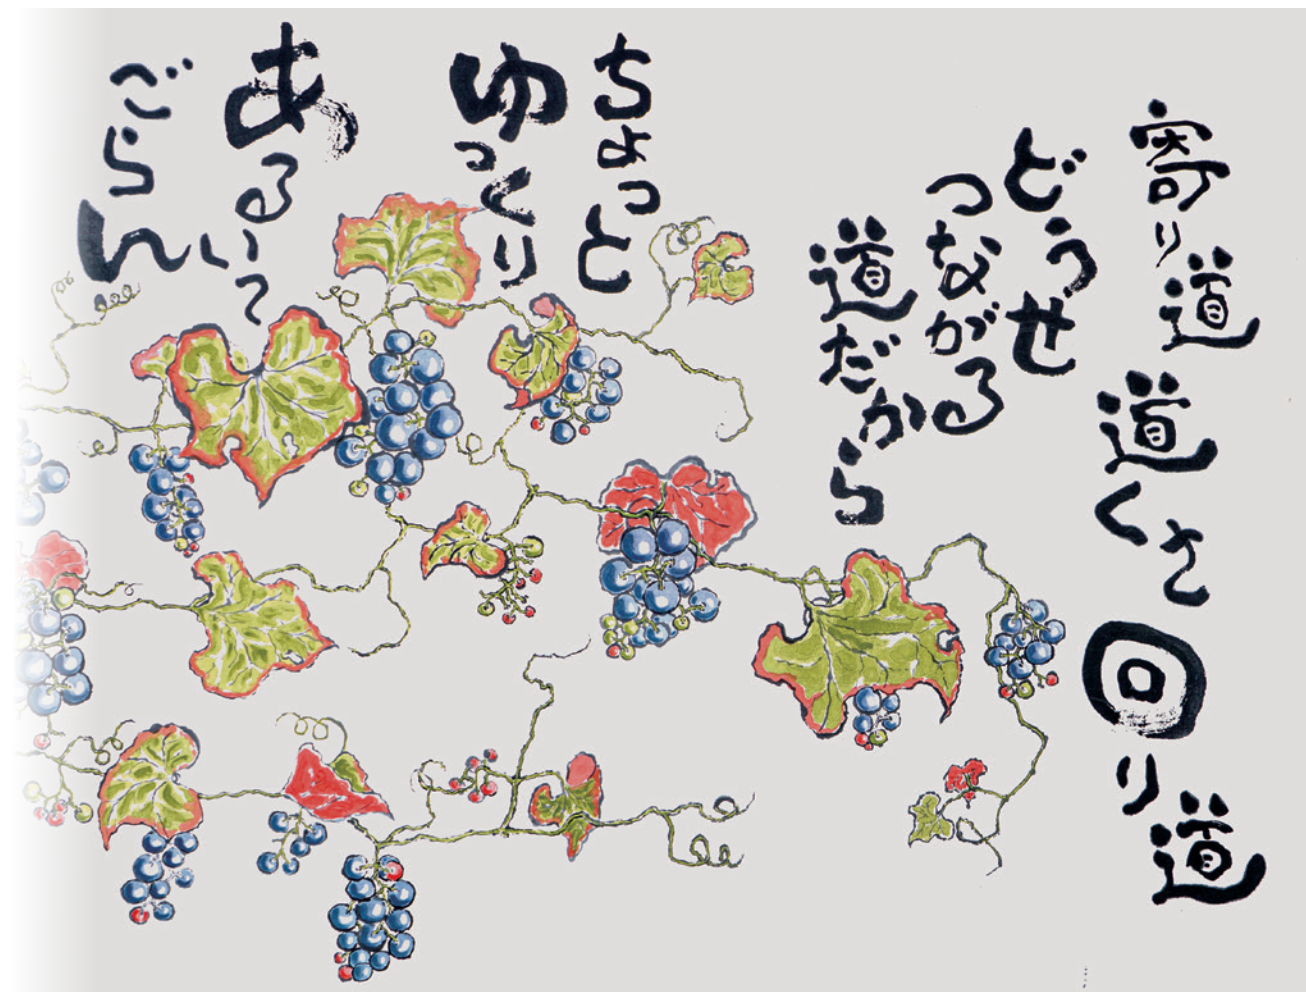 寄り道 道くさ 回り道
どうせ
つながる
道だから
ちょっと
ゆっくり
あるいて
ごらん